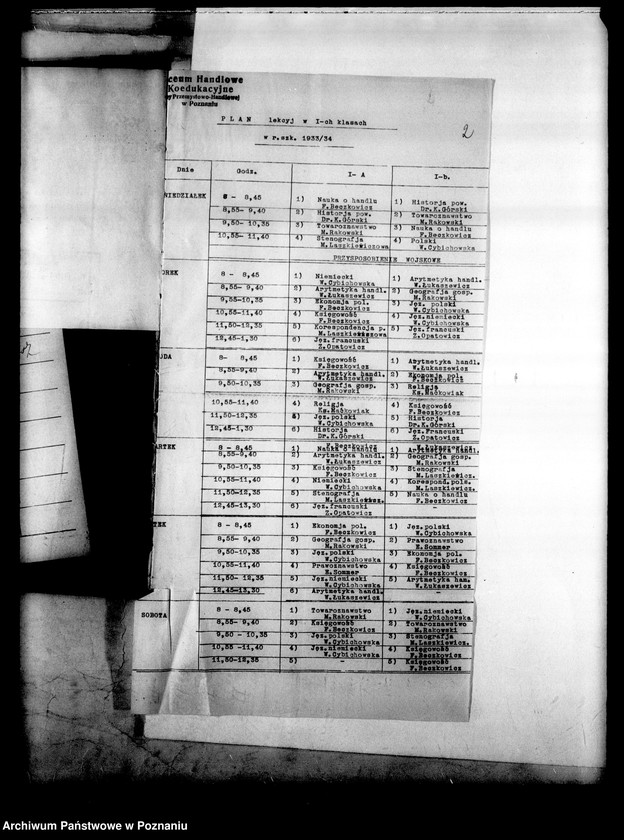 ceum Handlowe
Koedukacyjne
y Przemysłowo-Handlowej
w Poznaniu
PLAN lekcyj w I-ch klasach
w r.szk. 1933/34
2
Dnie Godz. I- A I-b.
NIEDZIAŁEK 8 - 8,45 1) Nauka o handlu 1) Historja pow.
F.Beczkowicz Dr.K.Górski
8,55- 9,40 2) Historja pow. 2) Towaroznawstwo
Dr.K.Górski M.Rakowski
9,50- 10,35 3) Towaroznawstwo 3) Nauka o handlu
M.Rakowski F.Beczkowicz
10,55- 11,40 4) Stenografja 4) Polski
M.Laszkiewiczowa W.Cybichowska
PRZYSPOSOBIENIE WOJSKOWE
OREK 8 - 8,45 1) Niemiecki 1) Arytmetyka handl.
W.Cybichowska W.Łukaszewicz
8,55- 9,40 2) Arytmetyka handl. 2) Geografja gosp.
W.Łukaszewicz M.Rakowski
9,55-10,35 3) Ekonomja pol. 3) Jęz. polski
F.Beczkowicz W.Cybichowska
10,55-11,40 4) Księgowość 4) Jęz.niemiecki
F.Beczkowicz W.Cybichowska
11,50-12,35 5) Korespondencja p. 5) Jęz.francuski
M.Laszkiewiczowa Z.Opatowicz
12,45-1,30 6) Jęz.francuski
Z.Opatowicz
ODA 8- 8,45 1) Księgowość 1) Arytmetyka handl.
F.Beczkowicz W.Łukaszewicz
8,55-9,40 2) Arytmetyka handl. 2) Ekonomja pol.
W.Łukaszewicz F.Beczkowicz
9,50-10,35 3) Geografja gosp. 3) Religja
M.Rakowski Ks.Maćkowiak
10,55-11,40 4) Religja 4) Księgowość
Ks.Maćkowiak F.Beczkowicz
11,50-12,35 5) Jęz.polski 5) Historja
W.Cybichowska Dr.K.Górski
12,45-1,30 6) Historja 6) Jęz.Francuski
Dr.K.Górski Z.Opatowicz
ARTEK 8 - 8,45 1) Nauka o handlu 1) Arytmetyka handl.
F.Beczkowicz
8,55-9,40 2) Arytmetyka handl. 2) Geografja gosp.
W.Łukaszewicz M.Rakowski
9,50-10,35 3) Księgowość 3) Stenografja
F.Beczkowicz M.Laszkiewicz.
10,55-11,40 4) Niemiecki 4) Korespond.pols.
W.Cybichowska M.Laszkiewicz.
11,50-12,35 5) Stenografja 5) Nauka o handlu
M.Laszkiewicz. F.Beczkowicz
12,45-13,30 6) Jęz.francuski -
Z.Opatowicz
TEK 8 - 8,45 1) Ekonomja pol. 1) Jęz.polski
F.Beczkowicz W.Cybichowska
8,55- 9,40 2) Geografja gosp. 2) Prawoznawstwo
M.Rakowski E.Sommer
9,50-10,35 3) Jęz.polski 3) Ekonomja pol.
W.Cybichowska F.Beczkowicz
10,55-11,40 4) Prawoznawstwo 4) Księgowość
E.Sommer F.Beczkowicz
11,50- 12,35 5) Jęz.niemiecki 5) Arytmetyka han.
W.Cybichowska W.Łukaszewicz
12,45-13,30 6) Arytmetyka handl. -
W.Łukaszewicz
SOBOTA 8 - 8,45 1) Towaroznawstwo 1) Jęz.niemiecki
M.Rakowski W.Cybichowska
8,55- 9,40 2) Księgowość 2) Towaroznawstwo
F.Beczkowicz M.Rakowski
9,50 - 10,35 3) Jęz.polski 3) Stenografja
W.Cybichowska M.Laszkiewicz.
10,55 -11,40 4) Jęz.niemiecki 4) Księgowość
W.Cybichowska F.Beczkowicz
11,50-12,35 5) - 5) Księgowość
F.Beczkowicz
Archiwum Państwowe w Poznaniu